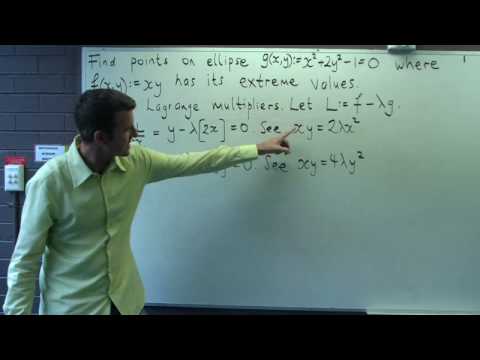 Find points on ellipse g(x,y):=x²+2y²-1=0 where
f(x,y):=xy has its extreme values.
Lagrange multipliers. Let L:=f-λg.
= y-λ[2x]=0. See xy=2λx²
=0. See xy=4λy²